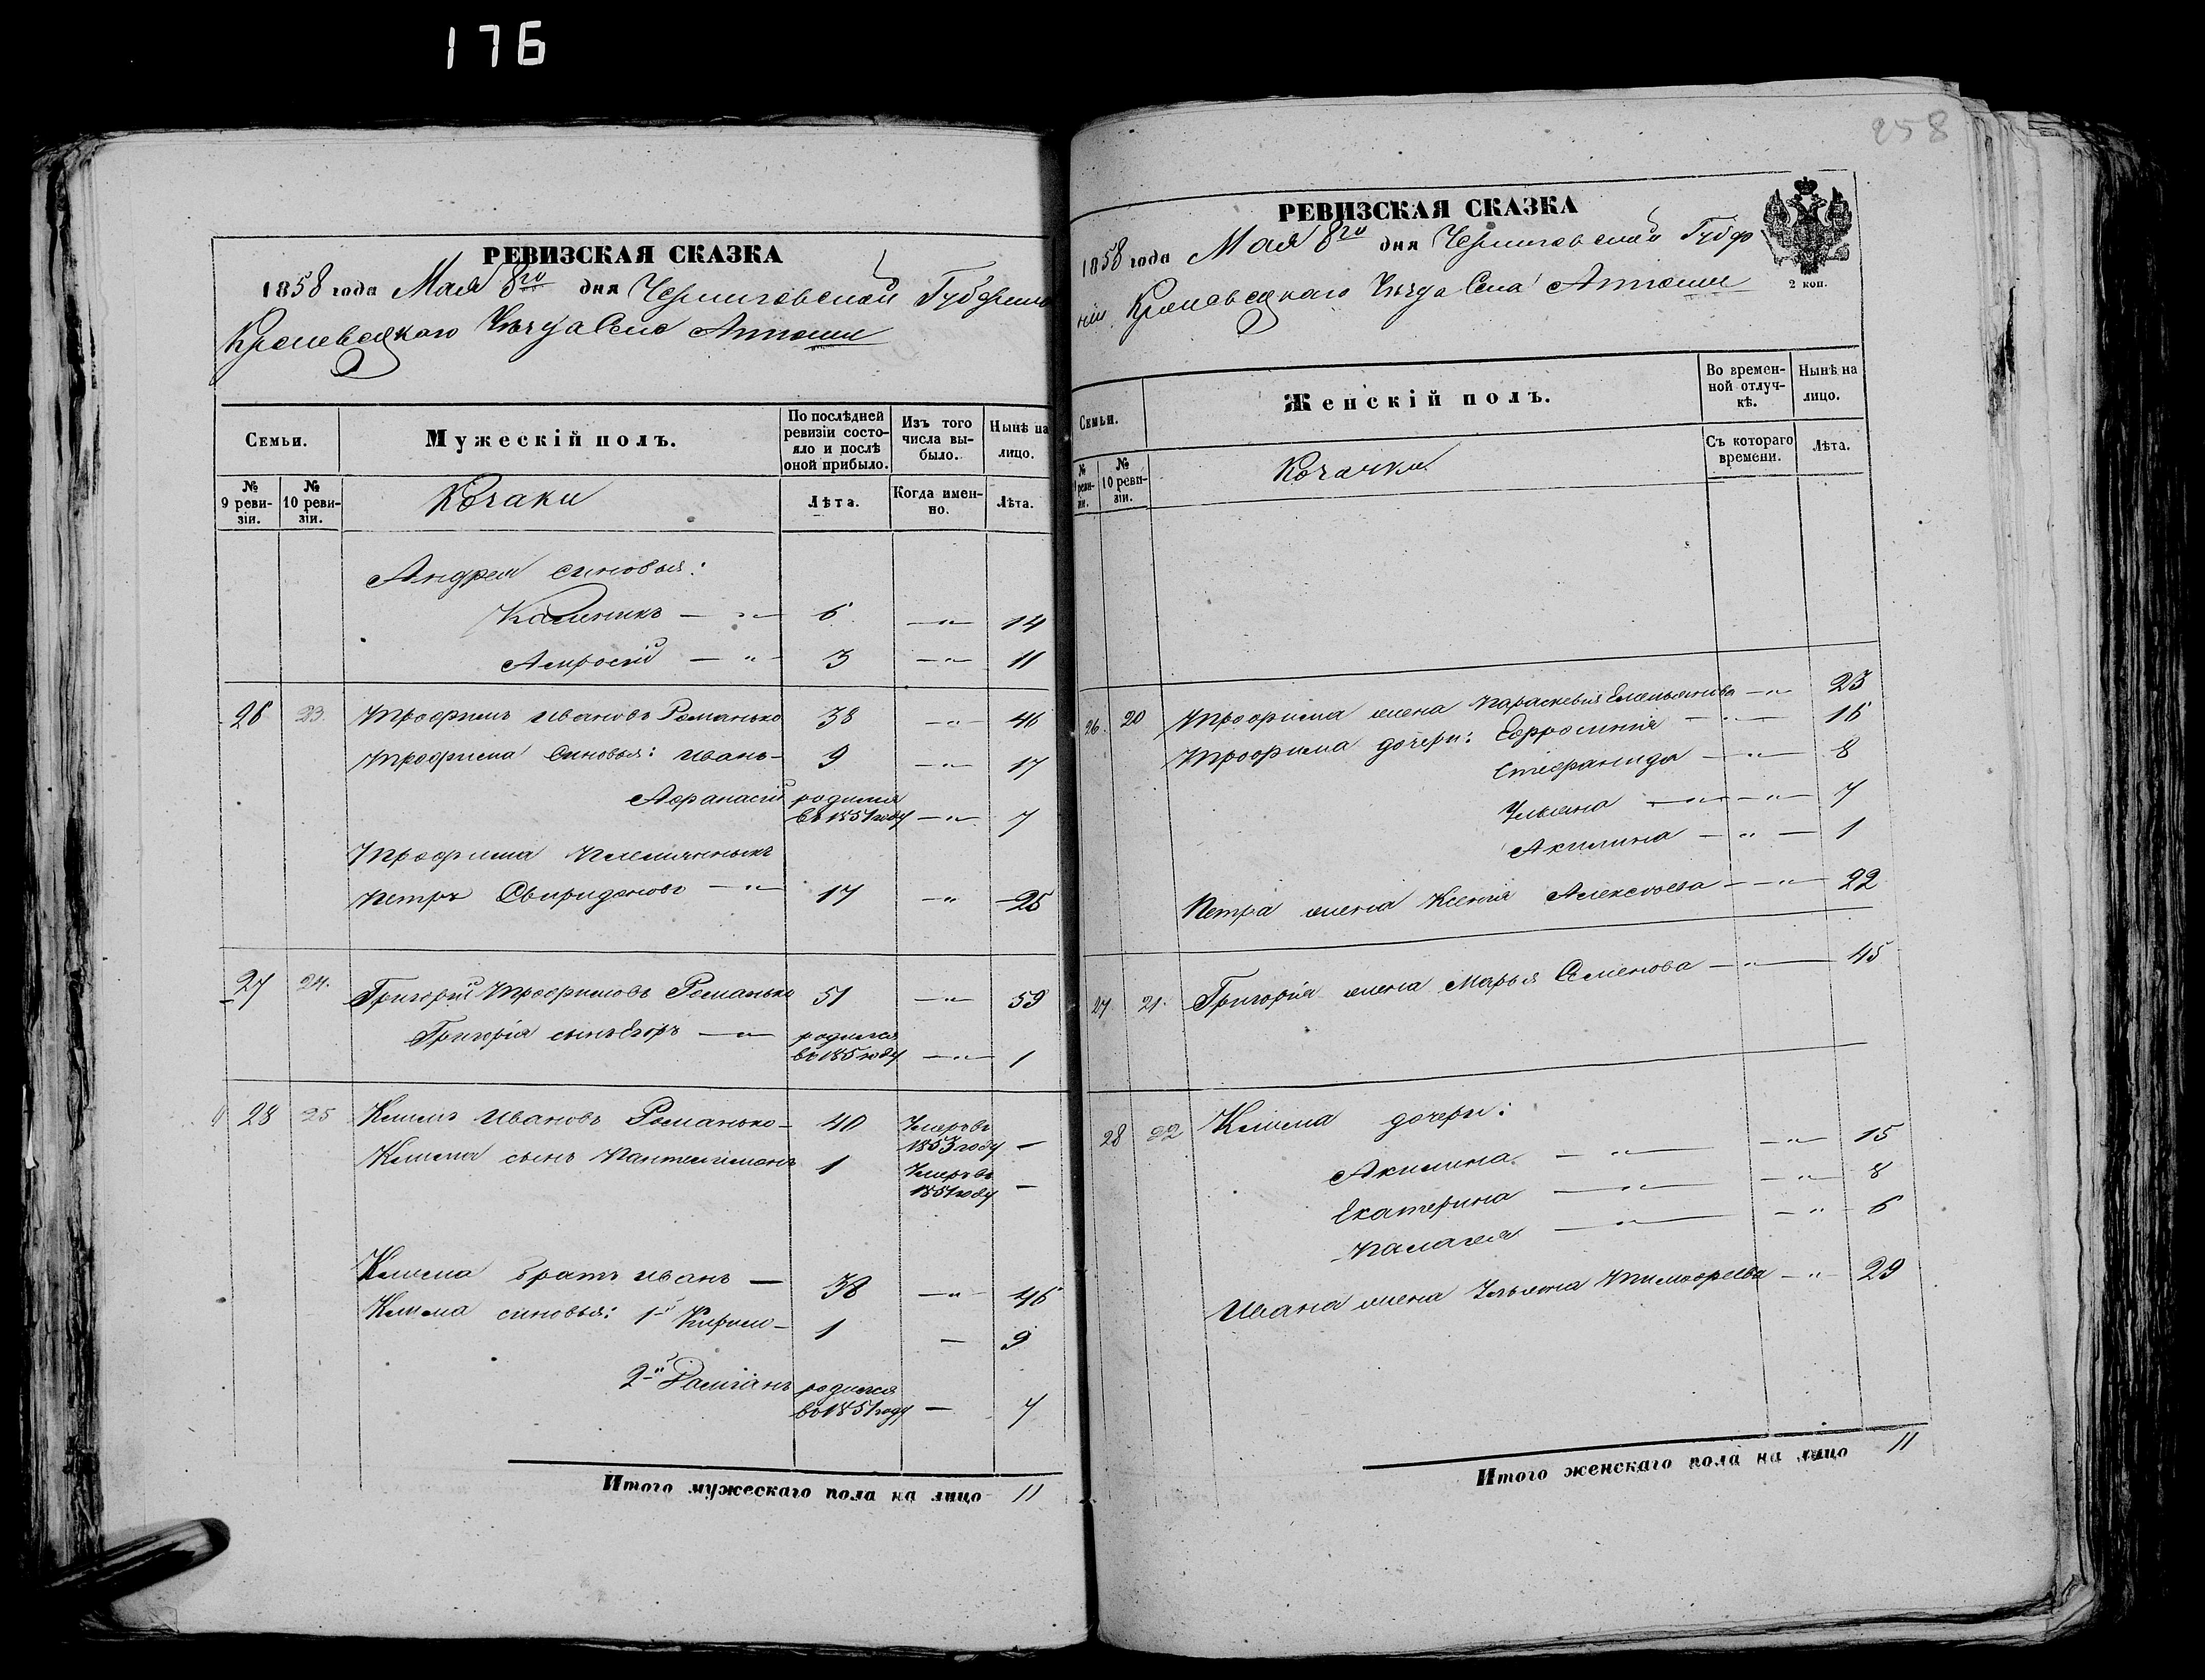 176
РЕВИЗСКАЯ СКАЗКА
1858 года Мая 8го дня Черниговской Губерніи
Кролевецкаго Уѣзда Села
Семьи.
Мужескій полъ.
По послѣдней ревизіи состояло и послѣ оной прибыло.
Изъ того числа выбыло.
Нынѣ на лицо.
№ 9 ревизіи.
№ 10 ревизіи.
Козаки
Лѣта.
Когда именно.
Лѣта.
Андрея синовья:
Калиникъ — „ — 6 — „ — 14
Амросій — „ — 3 — „ — 11
26 23. Трофимъ Ивановъ Романько 38 — „ — 46
Трофима синовья: Иванъ — 9 — „ — 17
Афанасій родился
въ 1851 году — „ — 7
Трофима племянникъ
Петръ Свиридоновъ — „ — 17 — „ — 25
27 24. Григорій Трофимовъ Романько 51 — „ — 59
Григорія сынъ Егоръ — „ — родился
въ 185 году — „ — 1
28 25 Климъ Ивановъ Романько — 40 Умеръ въ
1853 году —
Клима сынъ Пантелимонъ 1 Умеръ въ
1851 году —
Клима братъ Иванъ — 38 — „ — 46
Клима синовья: 1й — 1 — 9
2й родился
въ 1851 году — 7
Итого мужескаго пола на лицо 11
258
РЕВИЗСКАЯ СКАЗКА
1858 года Мая 8го дня Черниговской Губер
ніи Кролевецкаго Уѣзда Села
2 коп.
Семьи.
Женскій полъ.
Во временной отлучкѣ.
Нынѣ на лицо.
№ 9 ревизіи.
№ 10 ревизіи.
Козачки
Съ котораго времени.
Лѣта.
26. 20 Трофима жена Параскевія Емельянова — „ — 23
Трофима дочери: Ефросинія — „ — 16
Стефанида — „ — 8
Ульяна — „ — „ — 7
Акилина — „ — 1
Петра жена Ксенія Алексѣева — „ — 22
27. 21. Григорія жена Марья Семенова — „ — 45
28 22 Клима дочери:
Акилина — „ — — „ — 15
Екатерина — „ — — „ — 8
Палагея — „ — — „ — 6
Ивана жена Ульяна Тимофеева — „ — 29
Итого женскаго пола на лицо 11